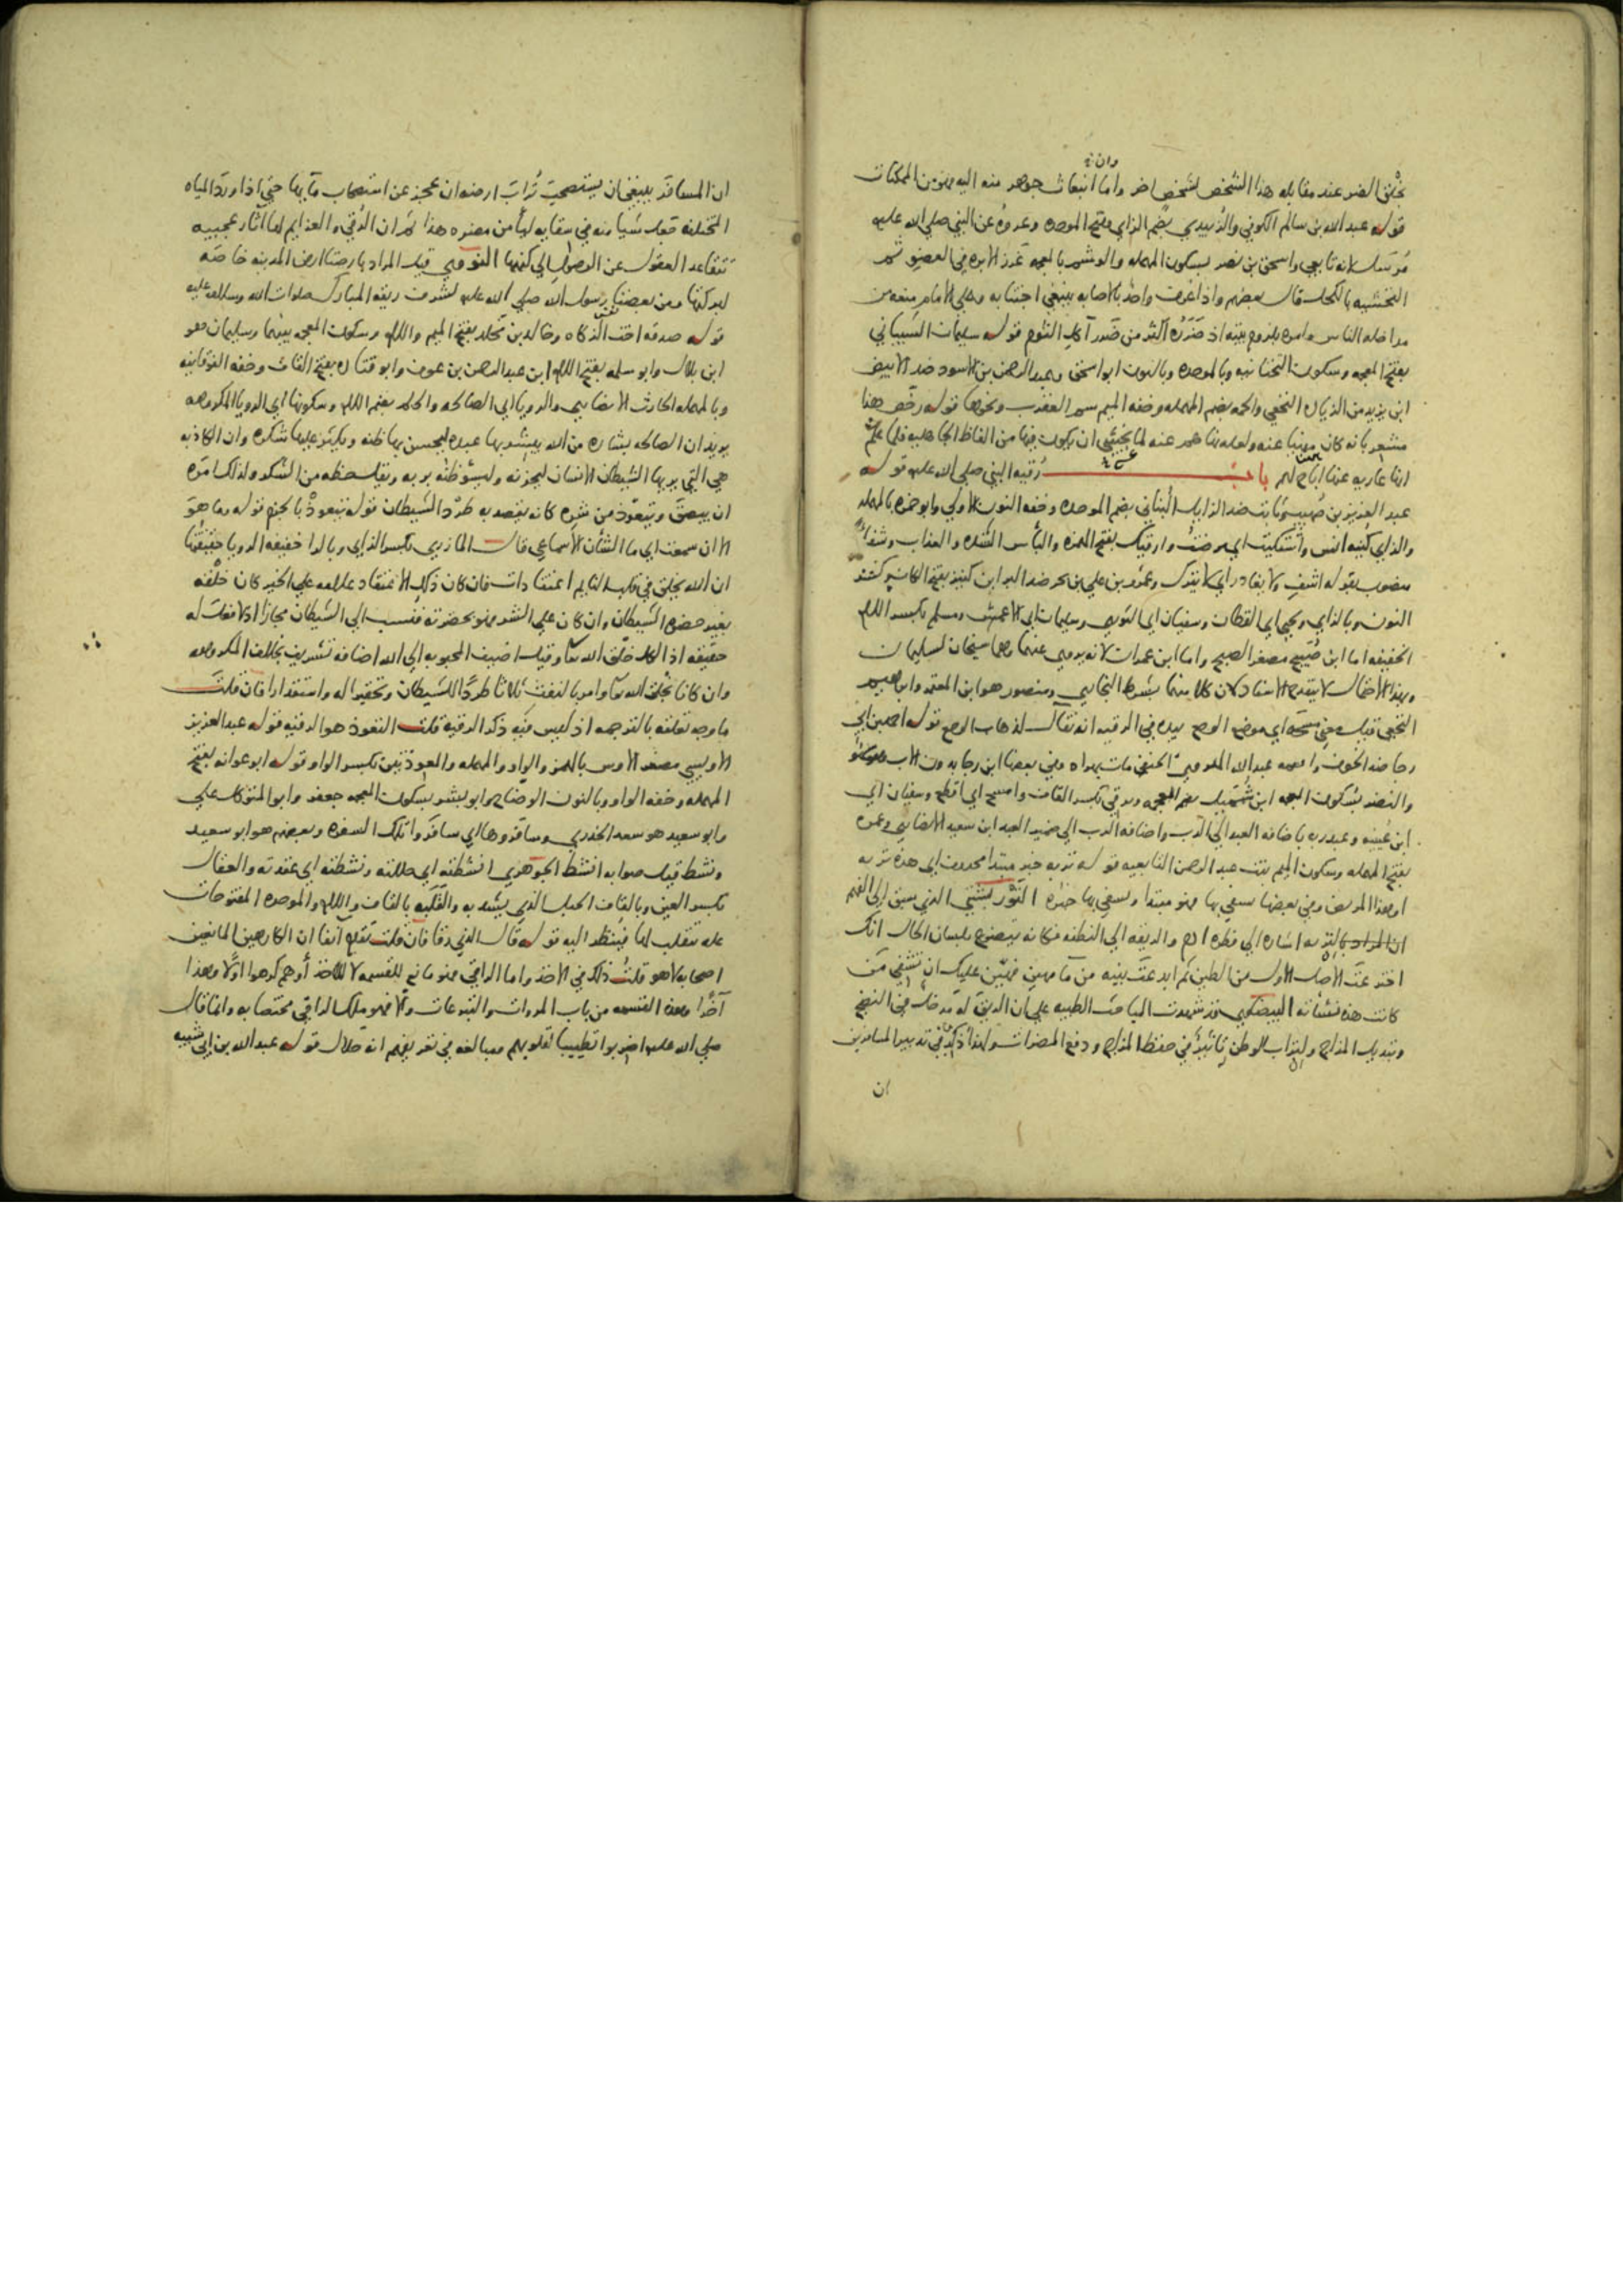 وان
يخلق الضرر عند مقابله هذا الشخص لشخص اخر واما انبعاث جوهر منه اليه فهو من الممكنات
قوله عبد الله بن سالم الكوفي والزبيدي بضم الزاي وفتح الموحده وعروة عن النبي صلي الله عليه
مُرسَل لانه تابعي واسحق بن نصر بسكون المهمله والوشم بالمعجمه غرز الابره في العضو ثم
التحشيه بالكحل قال بعضهم واذا عرف واحد بالاصابه ينبغي اجتنابه وعلي الامام منعه من
مداخله الناس وامره بلزوم بيته اذ ضرره اكثر من ضرر آكل الثوم قوله سليمان الشيباني
بفتح المعجمه وسكون التحتانيه وبالموحده وبالنون ابو اسحق وعبد الرحمن بن الاسود ضد الابيض
ابن يزيد من الزياده النخعي والحمه بضم المهمله وخفه الميم سم العقرب ونحوها قوله رخص هذا
مشعر بانه كان منهيا عنه ولعله نهاهم عنه لما يخشي ان يكون فيها من الفاظ الجاهليه فلما علم
انها عاريه عنها اباح لهم باب رُقيه النبي صلي الله عليه قوله
عبد العزيز بن صُهيب وثابت ضد الزايل البُناني بضم الموحده وخفه النون الاولي وابو حمزه بالمهمله
والزاي كنيه انس واشتكيت اي مرضتُ وارقيك بفتح الهمزه والبأس الشده والعذاب وشفاءً
منصوب بقوله اشفِ ولا يغادر اي لا يترك وعمرو بن علي بن بحر ضد البر ابن كنيز بفتح الكاف وكسر
النون وبالزاي ويحيي اي القطان وسفيان اي الثوري وسليمان اي الاعمش ومسلم بكسر اللام
الخفيفه اما ابن صُبيح مصغر الصبح واما ابن عمران لانه يروي عنهما وهما شيخان لسليمان
وبهذا الاحتمال لا يقدح الاسناد لان كلا منهما بشرط البخاري ومنصور هو ابن المعتمر وابراهيم
النخعي قيل معني مسحه اي موضع الوجع بيده في الرقيه انه تفال لذهاب الوجع قوله احمد بن ابي
رجا ضد الخوف واسمه عبد الله الهروي الحنفي مات بهراه وفي بعضها ابن رجا بدون الاب وهو سهو
والنضر بسكون المعجمه ابن شُمَيل بضم المعجمه ويرقي بكسر القاف وامسح اي اقطع وسفيان اي
ابن عُيينه وعبد ربه باضافه العبد الي الرب واضافه الرب الي ضمير العبد ابن سعيد الانصاري وعمره
بفتح المهمله وسكون الميم بنت عبد الرحمن التابعيه قوله تربه خبر مبتدا محذوف اي هذه تربه
او هذا المريض وفي بعضها يشفي بها فهو مبتدا ويشفي بها خبره التُوْر بشتي الذي يسبق الي الفهم
ان المراد بالتربه اشاره الي فطره ادم والريقه الي النطفه فكانه يتضرع بلسان الحال انك
اخترعت الاصل الاول من الطين ثم ابدعت بنيه من مآ مهين فهيّن عليك ان تشفي من
كانت هذه نشئاته البيضاوي قد شهدت المباحث الطبيه علي ان الريق له مدخل في النضج
وتبديل المزاج ولتراب الوطن تاثير في حفظ المزاج ودفع المضرات ولهذا ذكر في تدبير المسافرين
ان
ان المسافر ينبغي ان يستصحب تُرابَ ارضه ان عجز عن استصحاب مآيها حتي اذا ورد المياه
المختلفه جعل شيا منه في سقايه ليأمن مضره هذا ثم ان الرُقي والعزايم لها آثار عجيبه
تتقاعد العقول عن الوصول الي كنهها النووي قيل المراد بارضنا ارض المدينه خاصه
لبركتها ومن بعضنا رسول الله صلي الله عليه لشرف ريقه المبارك صلوات الله وسلامه عليه
قوله صدقه اخت الزكاه وخالد بن مخلد بفتح الميم واللام وسكون المعجمه بينهما وسليمان هو
ابن بلال وابو سلمه بفتح اللام ابن عبد الرحمن بن عوف وابو قتاده بفتح القاف وخفه الفوقانيه
وبالمهمله الحارث الانصاري والرويا اي الصالحه والحلم بضم اللام وسكونها اي الرويا المكروهه
يريد ان الصالحه بشاره من الله يبشر بها عبده ليحسن بها ظنه ويكثر عليها شكره وان الكاذبه
هي التي يريها الشيطان الانسان ليحزنه وليسُؤ ظنُه بربه ويقل حظه من الشكر ولذلك امره
ان يبصق ويتعوّذ من شره كانه يقصد به طرْد الشيطان قوله يتعوذْ بالجزم قوله وما هو
الا ان سمعت اي ما الشان الا سماعي قال المازري بكسر الزاي وبالرا حقيقه الرويا حقيقتُها
ان الله يخلق في قلب النايم اعتقادات فان كان ذلك الاعتقاد علامه علي الخير كان خلْقه
بغير حضره الشيطان وان كان علي الشر فهو بحضرته فنسب الي الشيطان مجازًا اذ لا فعل له
حقيقه اذ الكل خلق الله تعا وقيل اضيف المحبوبه الي الله اضافه تشريف بخلاف المكروهه
وان كانا بخلق الله تعا وامر بالنفث ثلاثا طردًا للشيطان وتحقيرا له واستقذارا فان قلت
ما وجه تعلقه بالترجمه اذ ليس فيه ذكر الرقية قلت التعوذ هو الرقيه قوله عبد العزيز
الاويسي مصغر الاوس بالهمز والواو والمهمله والمعوذتين بكسر الواو قوله ابو عوانه بفتح
المهمله وخفه الواو وبالنون الوضاح وابو بشر بسكون المعجمه جعفر وابو المتوكل علي
وابو سعيد هو سعد الخدري وسافروها اي سافروا تلك السفره وبعضهم هو ابو سعيد
ونشط قيل صوابه انشط الجوهري انشطته اي حللته ونشطته اي عقدته والعقال
بكسر العين وبالقاف الحبل الذي يشد به والقَلَبه بالقاف واللام والموحده المفتوحات
عله تنقلب لها فيُنظر اليه قوله قال الذي رقا فان قلت تقدم آنفا ان الكارهين المانعين
اصحابه لا هو قلتُ ذلك في الاخذ واما الراقي فهو مانع للقسمه لا للاخذ أو هم كرهوا اوّلا وهذا
آخرًا وهذه القسمه من باب المروات والتبرعات والا فهو ملك الراقي مختصا به وانما قال
صلي الله عليه اضربوا تطييبا لقلوبهم ومبالغه في تعريفهم انه حلال قوله عبد الله بن ابي شيبه